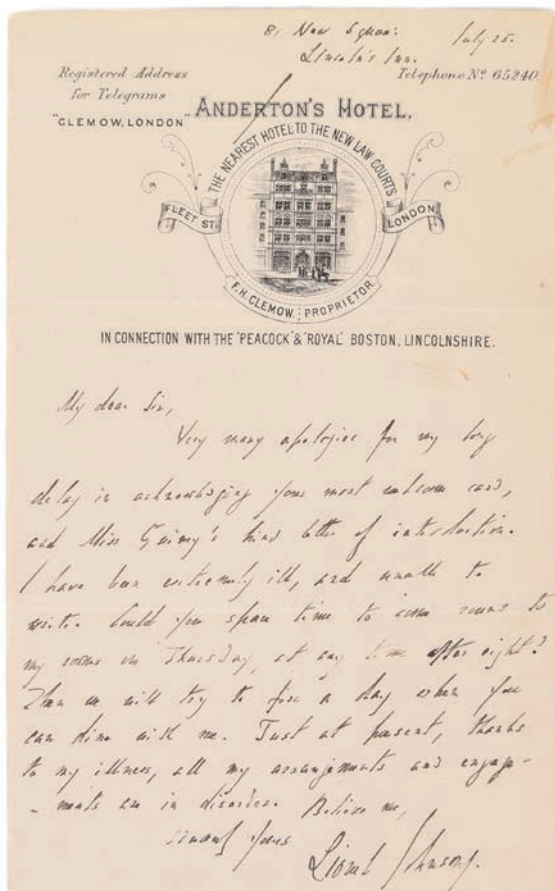 8, New Square:
Lincoln's Inn.
July 25.
Registered Address
for Telegrams
"CLEMOW, LONDON"
Telephone No 65240.
ANDERTON'S HOTEL,
THE NEAREST HOTEL TO THE NEW LAW COURTS
FLEET ST.
LONDON
F.H. CLEMOW, PROPRIETOR
IN CONNECTION WITH THE "PEACOCK" & "ROYAL" BOSTON, LINCOLNSHIRE.
My dear Sir,
Very many apologies for my long
delay in acknowledging your most welcome card,
and Miss Guiney's kind letter of introduction.
I have been extremely ill, and unable to
write. Could you spare time to come round to
my rooms on Thursday, at any time after eight?
Then we will try to fix a day when you
can dine with me. Just at present, thanks
to my illness, all my arrangements and engage-
-ments are in disorder. Believe me,
sincerely yours
Lionel Johnson.